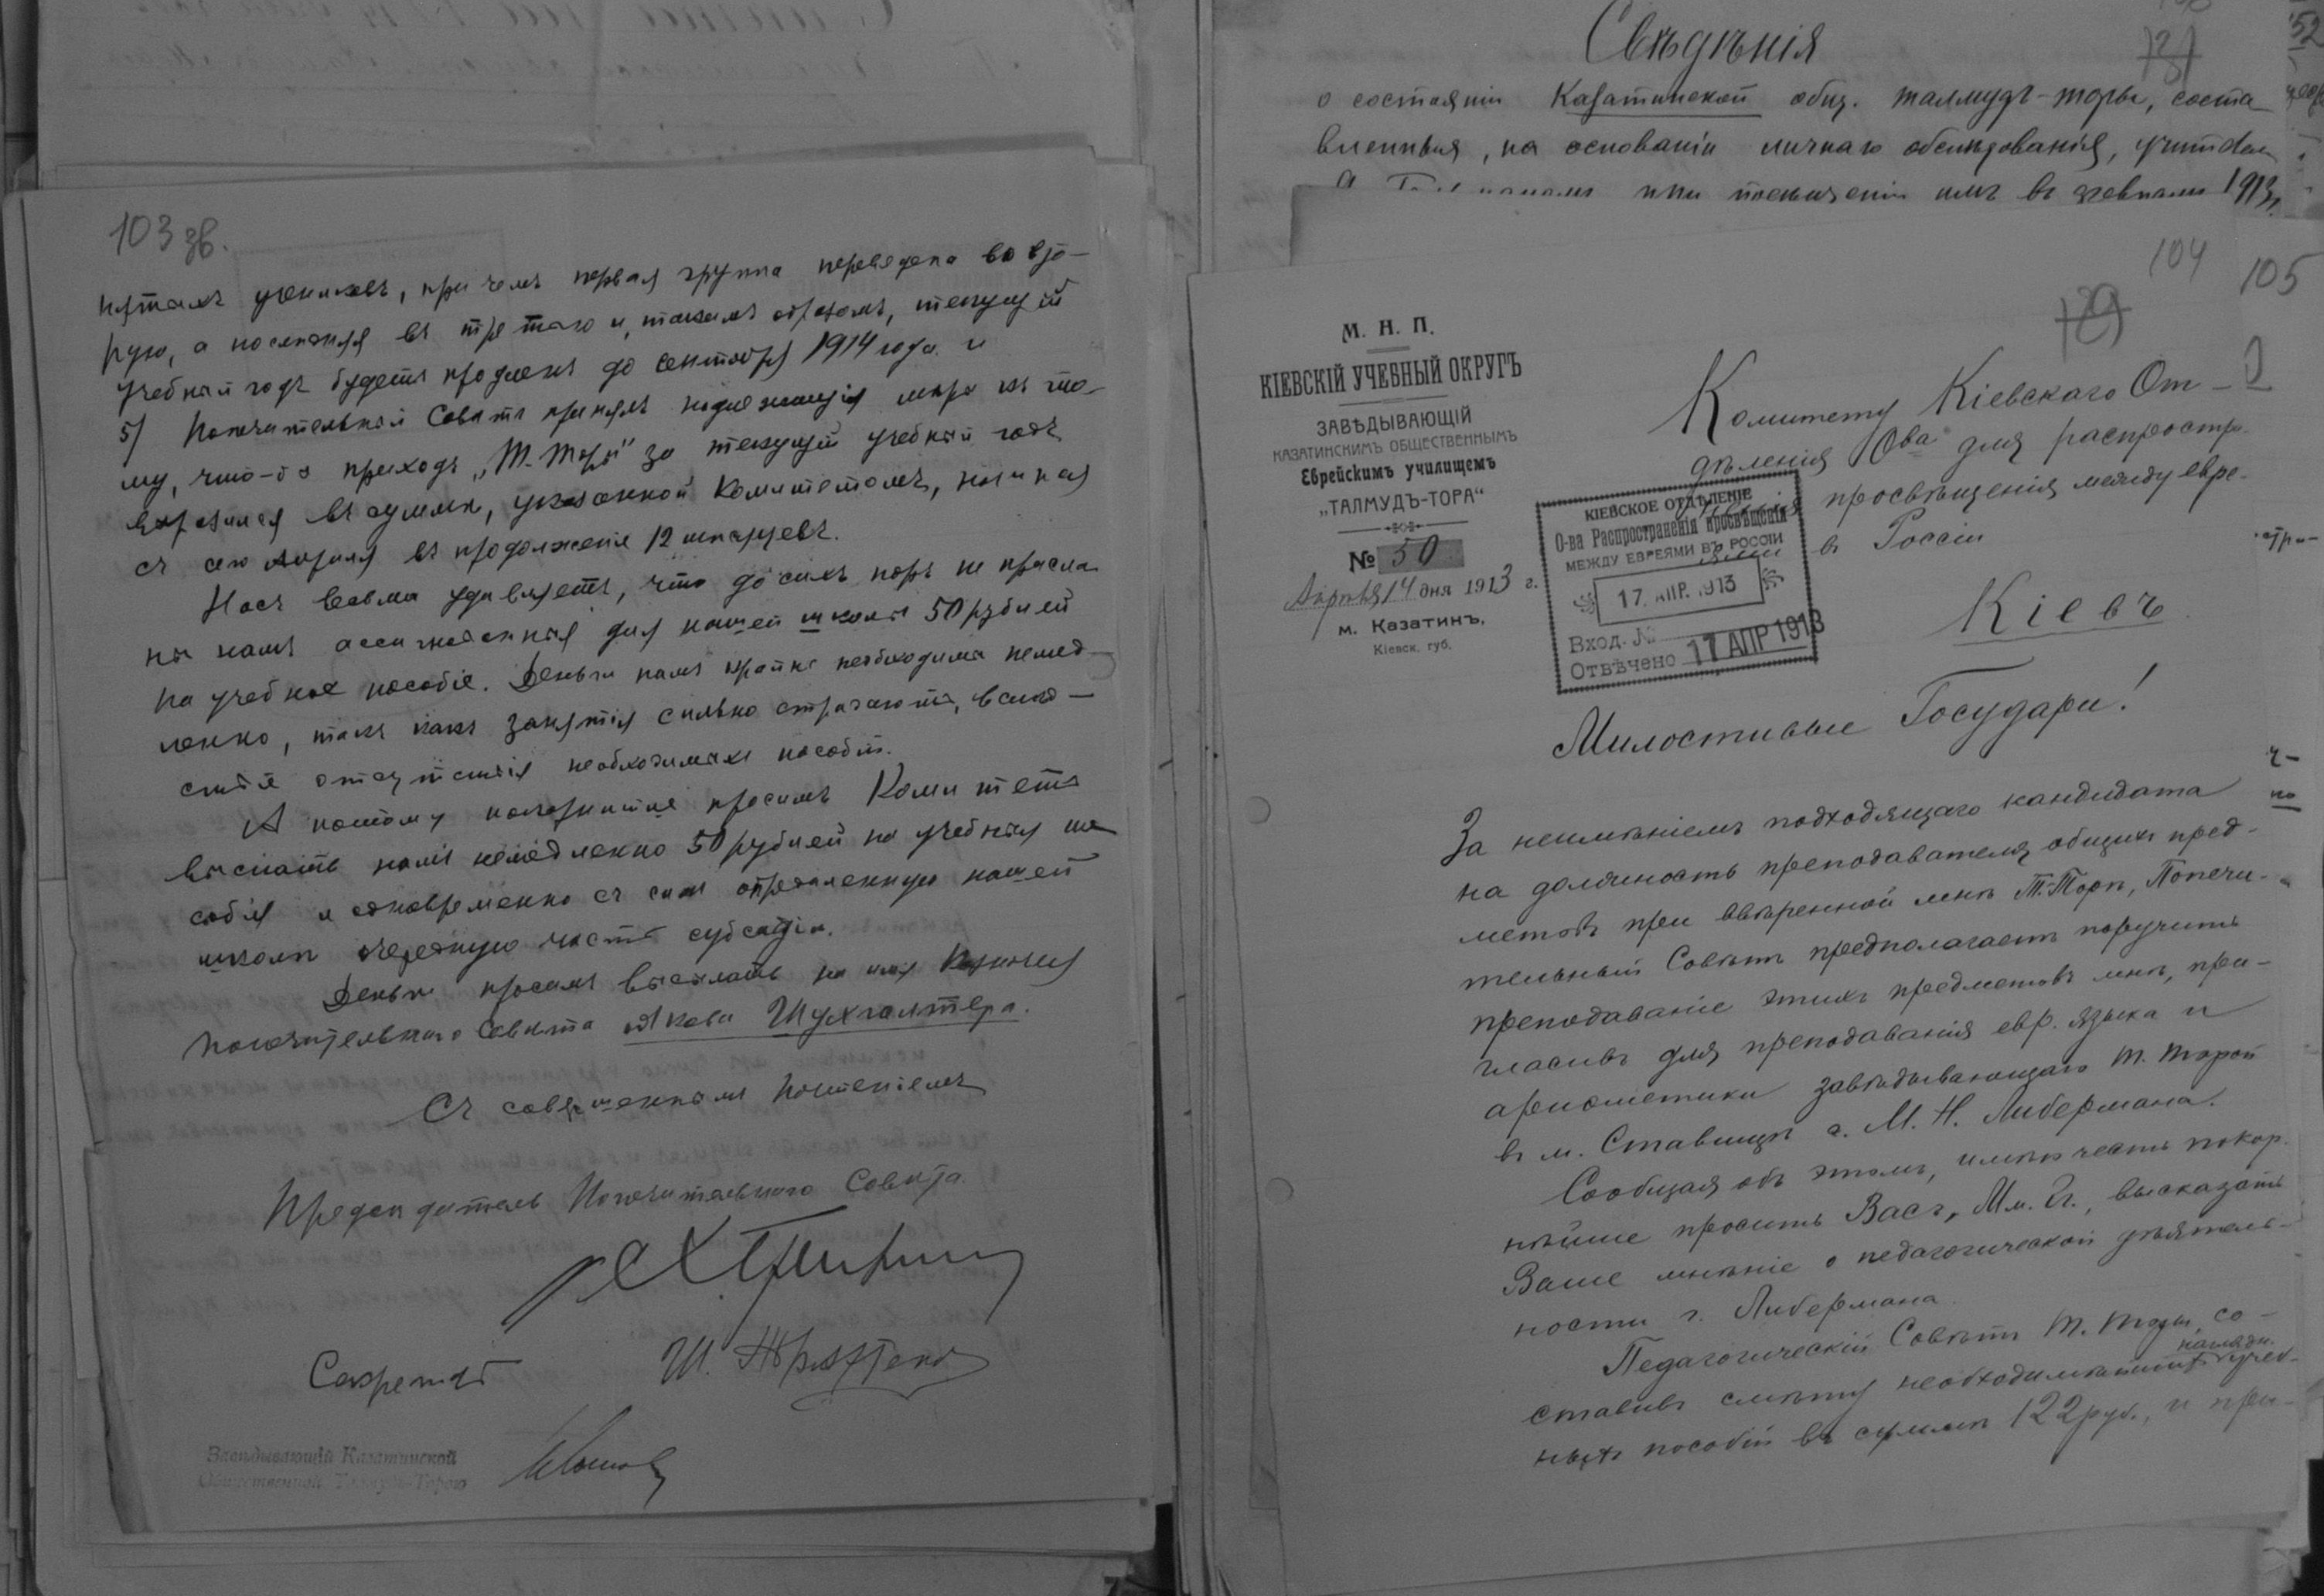 103 зв.
нятыхъ учениковъ, при чемъ первая группа переведена во вто-
рую, а последняя въ третью и, такимъ образомъ, текущiй
учебный годъ будетъ продленъ до сентября 1914 года. и
5) Попечительный Советъ принялъ надлежащiя меры къ то-
му, что-бъ приходъ „Т.-Торы" за текущiй учебный годъ
выразился въ сумме, указанной Комитетомъ, начиная
съ сего апреля въ продолженiе 12 месяцевъ.
Насъ весьма удивляетъ, что до сихъ поръ не присла-
ны намъ ассигнованныя для нашей школы 50 рублей
на учебное пособiе. Деньги намъ крайне необходимы немед-
ленно, такъ какъ занятiя сильно страдаютъ, вслед-
ствiе отсутствiя необходимыхъ пособiй.
А потому покорнейше просимъ Комитетъ
выслать намъ немедленно 50 рублей на учебныя по-
собiя и одновременно съ симъ определенную нашей
школе очередную часть субсидiи.
Деньги просимъ высылать на имя Казначея
Попечительнаго Совета Якова Шухгалтера.
Съ совершеннымъ почтенiемъ
Председатель Попечительнаго Совета
Секретарь
Заведывающiй Казатинской
Общественной Талмудъ-Торою
Свѣдѣнiя
о состоянiи Казатинской общ. талмудъ-торы, соста-
вленныя, на основанiи личнаго обслѣдованiя, учителемъ
при посѣщенiи имъ въ февралѣ 1913 г.
104
105
М. Н. П.
КIЕВСКIЙ УЧЕБНЫЙ ОКРУГЪ
ЗАВѢДЫВАЮЩIЙ
КАЗАТИНСКИМЪ ОБЩЕСТВЕННЫМЪ
Еврейскимъ училищемъ
„ТАЛМУДЪ-ТОРА"
№ 50
Апрѣля 14 дня 1913 г.
м. Казатинъ,
Кiевск. губ.
Комитету Кiевскаго От-
дѣленiя О-ва для распростра-
ненiя просвѣщенiя между евре-
ями въ Россiи
КIЕВСКОЕ ОТДѢЛЕНIЕ
О-ва Распространенiя просвѣщенiя
МЕЖДУ ЕВРЕЯМИ ВЪ РОССIИ
17. АПР. 1913
Вход. №
Отвѣчено 17 АПР 1913
Кiевъ
Милостивые Государи!
За неимѣнiемъ подходящаго кандидата
на должность преподавателя общихъ пред-
метовъ при ввѣренной мнѣ Т.-Торѣ, Попечи-
тельный Совѣтъ предполагаетъ поручить
преподаванiе этихъ предметовъ мнѣ, при-
гласивъ для преподаванiя евр. языка и
ариѳметики завѣдывающаго Т. Торой
въ м. Ставищѣ г. М. Н. Либермана.
Сообщая объ этомъ, имѣю честь покор-
нѣйше просить Васъ, Мм. Гг., высказать
Ваше мнѣнiе о педагогической дѣятель-
ности г. Либермана.
Педагогическiй Совѣтъ Т. Торы, со-
ставивъ смѣту необходимѣйшихъ наглядн. учеб-
ныхъ пособiй въ суммѣ 122 руб., и при-